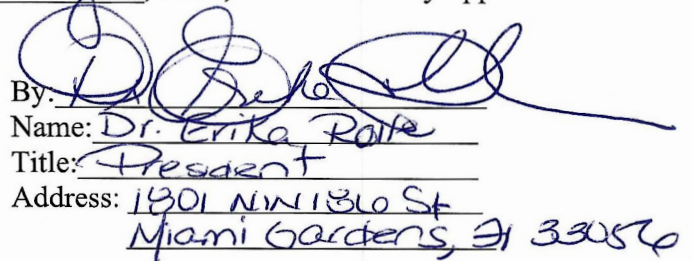 By: Dr Erika
Name: Dr. Erika Rolle
Title: President
Address: 1801 NW 186 St
Miami Gardens, Fl 33056